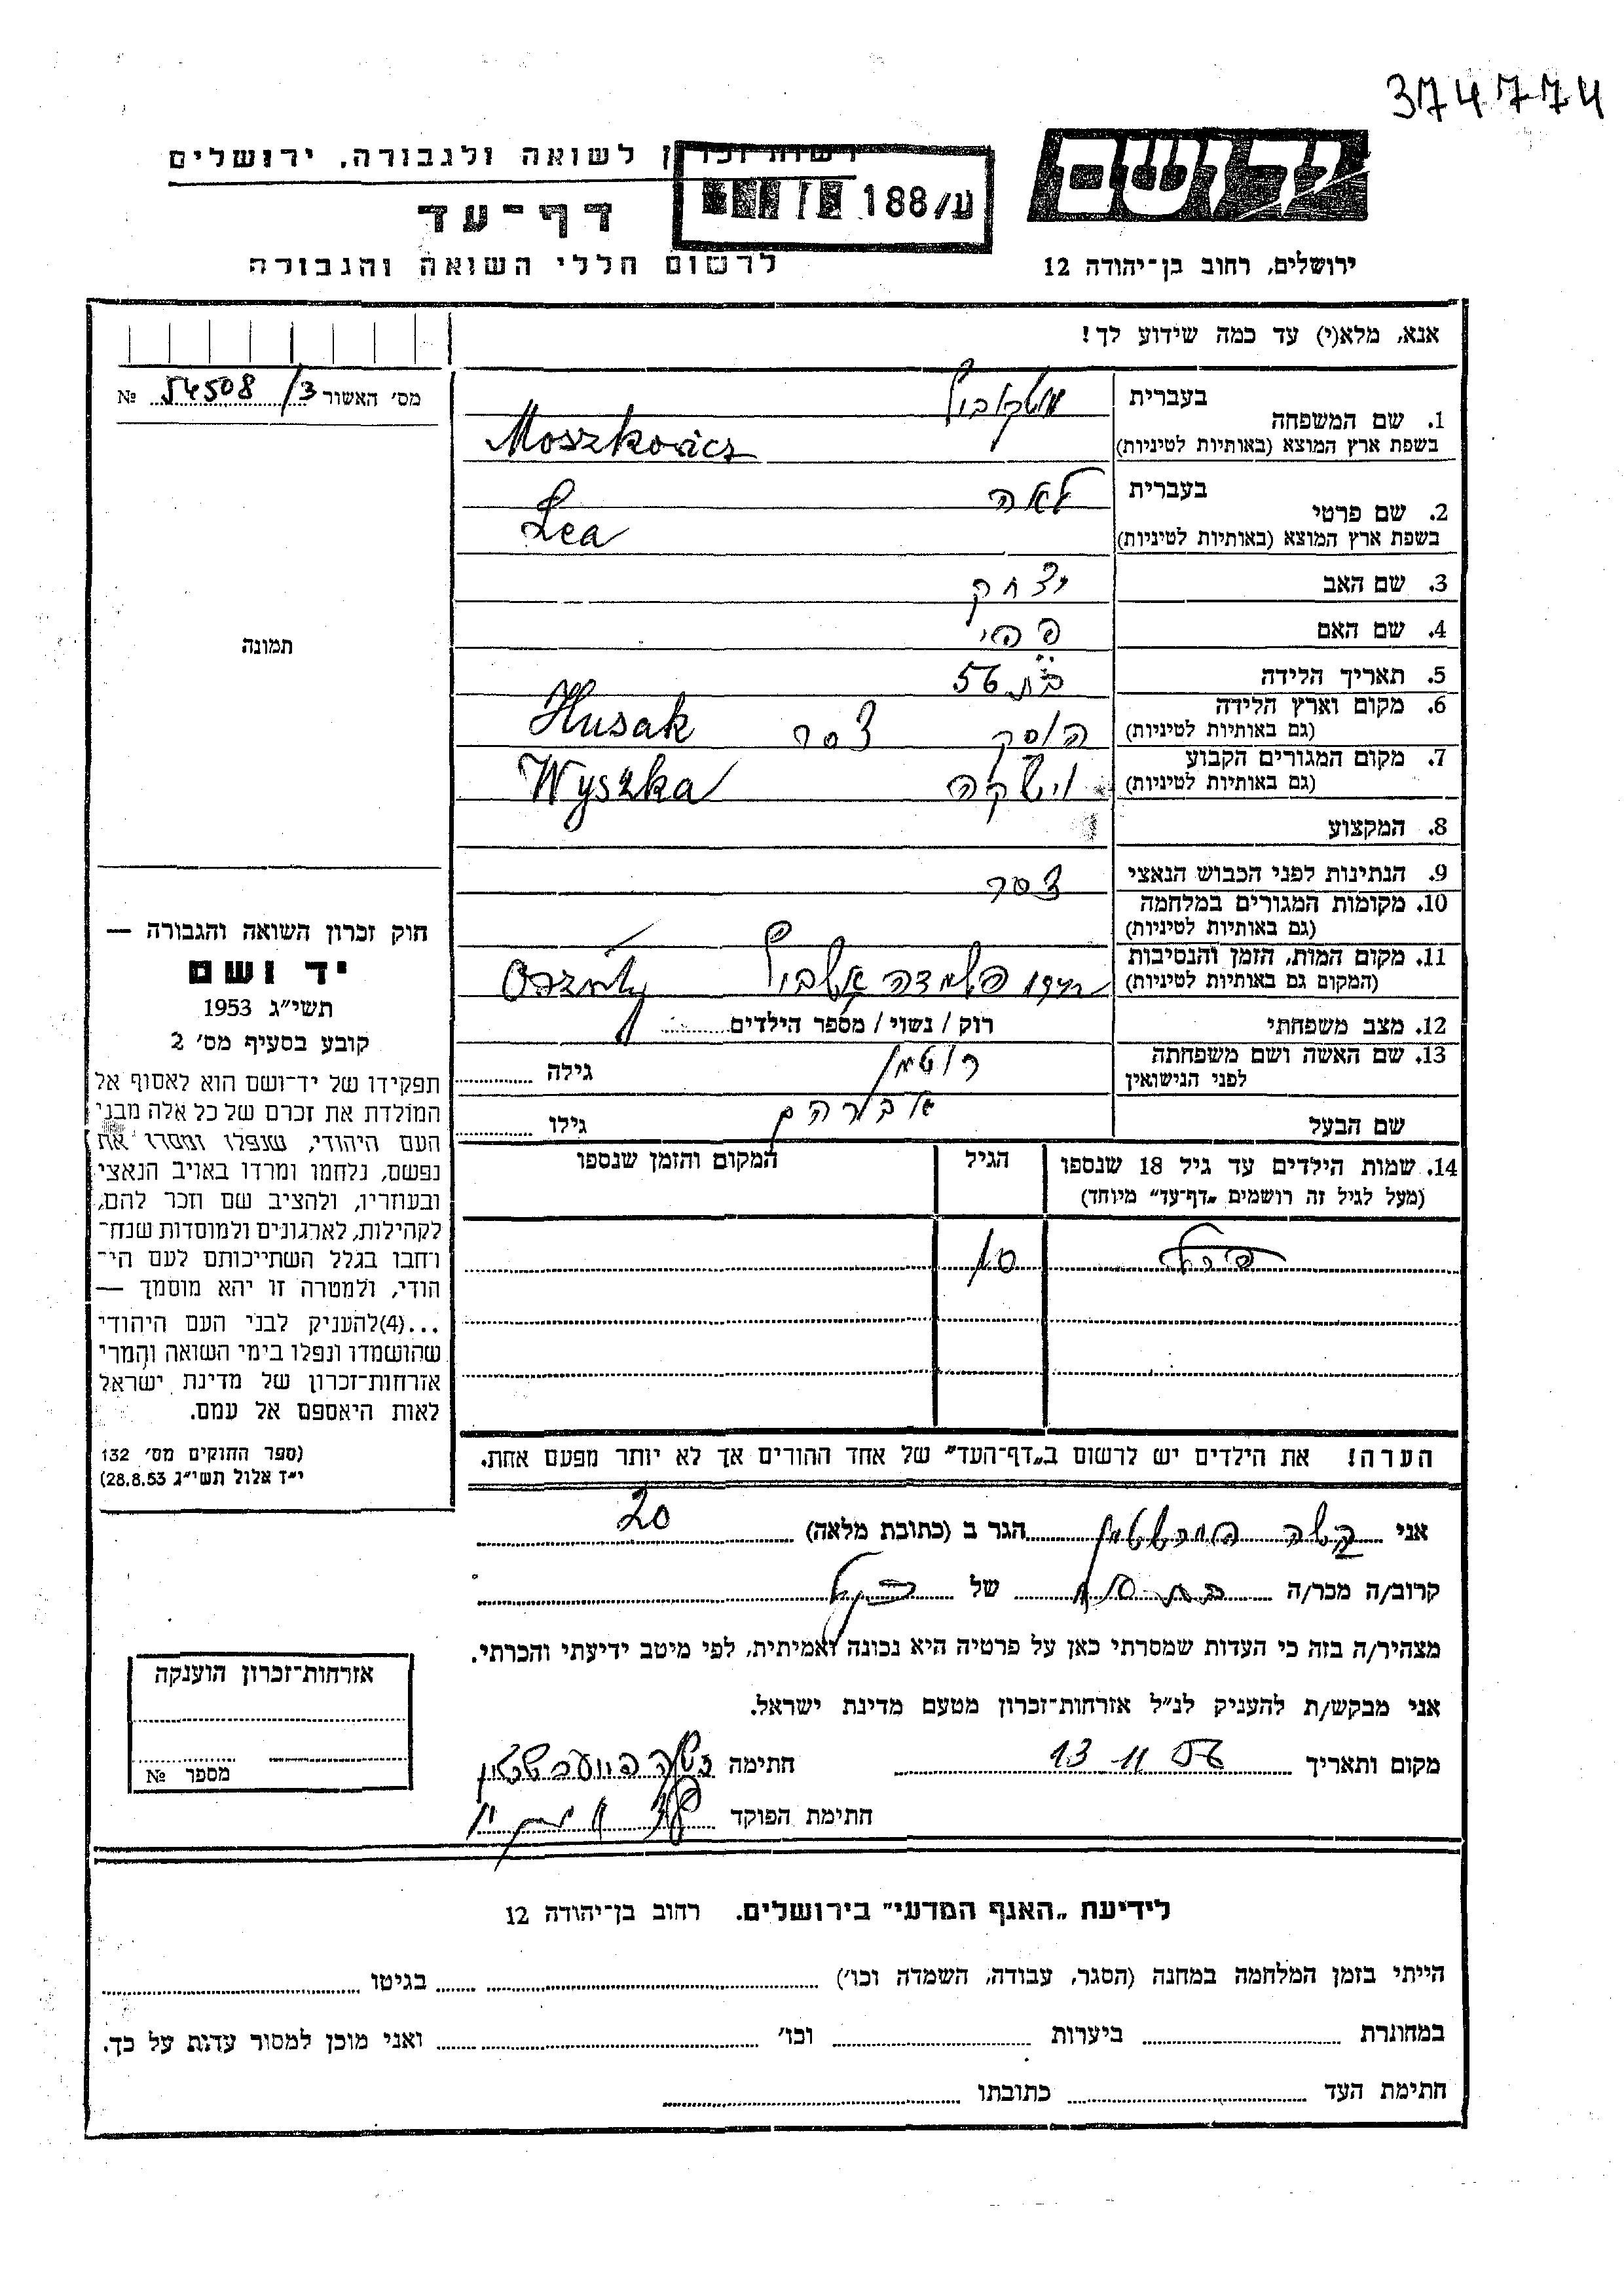 374774
רשות זכרון לשואה ולגבורה, ירושלים
ע/188
דף־עד
לרשום חללי השואה והגבורה
ירושלים, רחוב בן־יהודה 12
אנא, מלא(י) עד כמה שידוע לך!
מס׳ האשור 54508/3 №
1. שם המשפחה
בעברית מושקוביץ
בשפת ארץ המוצא (באותיות לטיניות) Moszkovicz
2. שם פרטי
בעברית לאה
בשפת ארץ המוצא (באותיות לטיניות) Lea
3. שם האב יצחק
4. שם האם
5. תאריך הלידה בת 56
6. מקום וארץ הלידה הוסק צסר Husak
(גם באותיות לטיניות)
7. מקום המגורים הקבוע וישקה Wyszka
(גם באותיות לטיניות)
8. המקצוע
9. הנתינות לפני הכבוש הנאצי צסר
10. מקומות המגורים במלחמה
(גם באותיות לטיניות)
11. מקום המות, הזמן והנסיבות
(המקום גם באותיות לטיניות)
12. מצב משפחתי רוק / נשוי / מספר הילדים
13. שם האשה ושם משפחתה רוטמן גילה
לפני הנישואין
שם הבעל אברהם גילו
14. שמות הילדים עד גיל 18 שנספו הגיל המקום והזמן שנספו
(מעל לגיל זה רושמים „דף־עד״ מיוחד)
הערה! את הילדים יש לרשום ב„דף־העד״ של אחד ההורים אך לא יותר מפעם אחת.
תמונה
חוק זכרון השואה והגבורה —
יד ושם
תשי״ג 1953
קובע בסעיף מס׳ 2
תפקידו של יד־ושם הוא לאסוף אל
המולדת את זכרם של כל אלה מבני
העם היהודי, שנפלו ומסרו את
נפשם, נלחמו ומרדו באויב הנאצי
ובעוזריו, ולהציב שם וזכר להם,
לקהילות, לארגונים ולמוסדות שנח־
רחבו בגלל השתייכותם לעם הי־
הודי, ולמטרה זו יהא מוסמך —
...(4)להעניק לבני העם היהודי
שהושמדו ונפלו בימי השואה והמרי
אזרחות־זכרון של מדינת ישראל
לאות היאספם אל עמם.
(ספר החוקים מס׳ 132
י״ז אלול תשי״ג 28.8.53)
אני הגר ב (כתובת מלאה) 20
קרוב/ה מכר/ה של
מצהיר/ה בזה כי העדות שמסרתי כאן על פרטיה היא נכונה ואמיתית, לפי מיטב ידיעתי והכרתי.
אני מבקש/ת להעניק לנ״ל אזרחות־זכרון מטעם מדינת ישראל.
מקום ותאריך 13 11 56 חתימה
חתימת הפוקד
אזרחות־זכרון הוענקה
מספר №
לידיעת „האגף המדעי״ בירושלים. רחוב בן־יהודה 12
הייתי בזמן המלחמה במחנה (הסגר, עבודה, השמדה וכו׳) בגיטו
במחתרת ביערות וכו׳ ואני מוכן למסור עדות על כך.
חתימת העד כתובתו